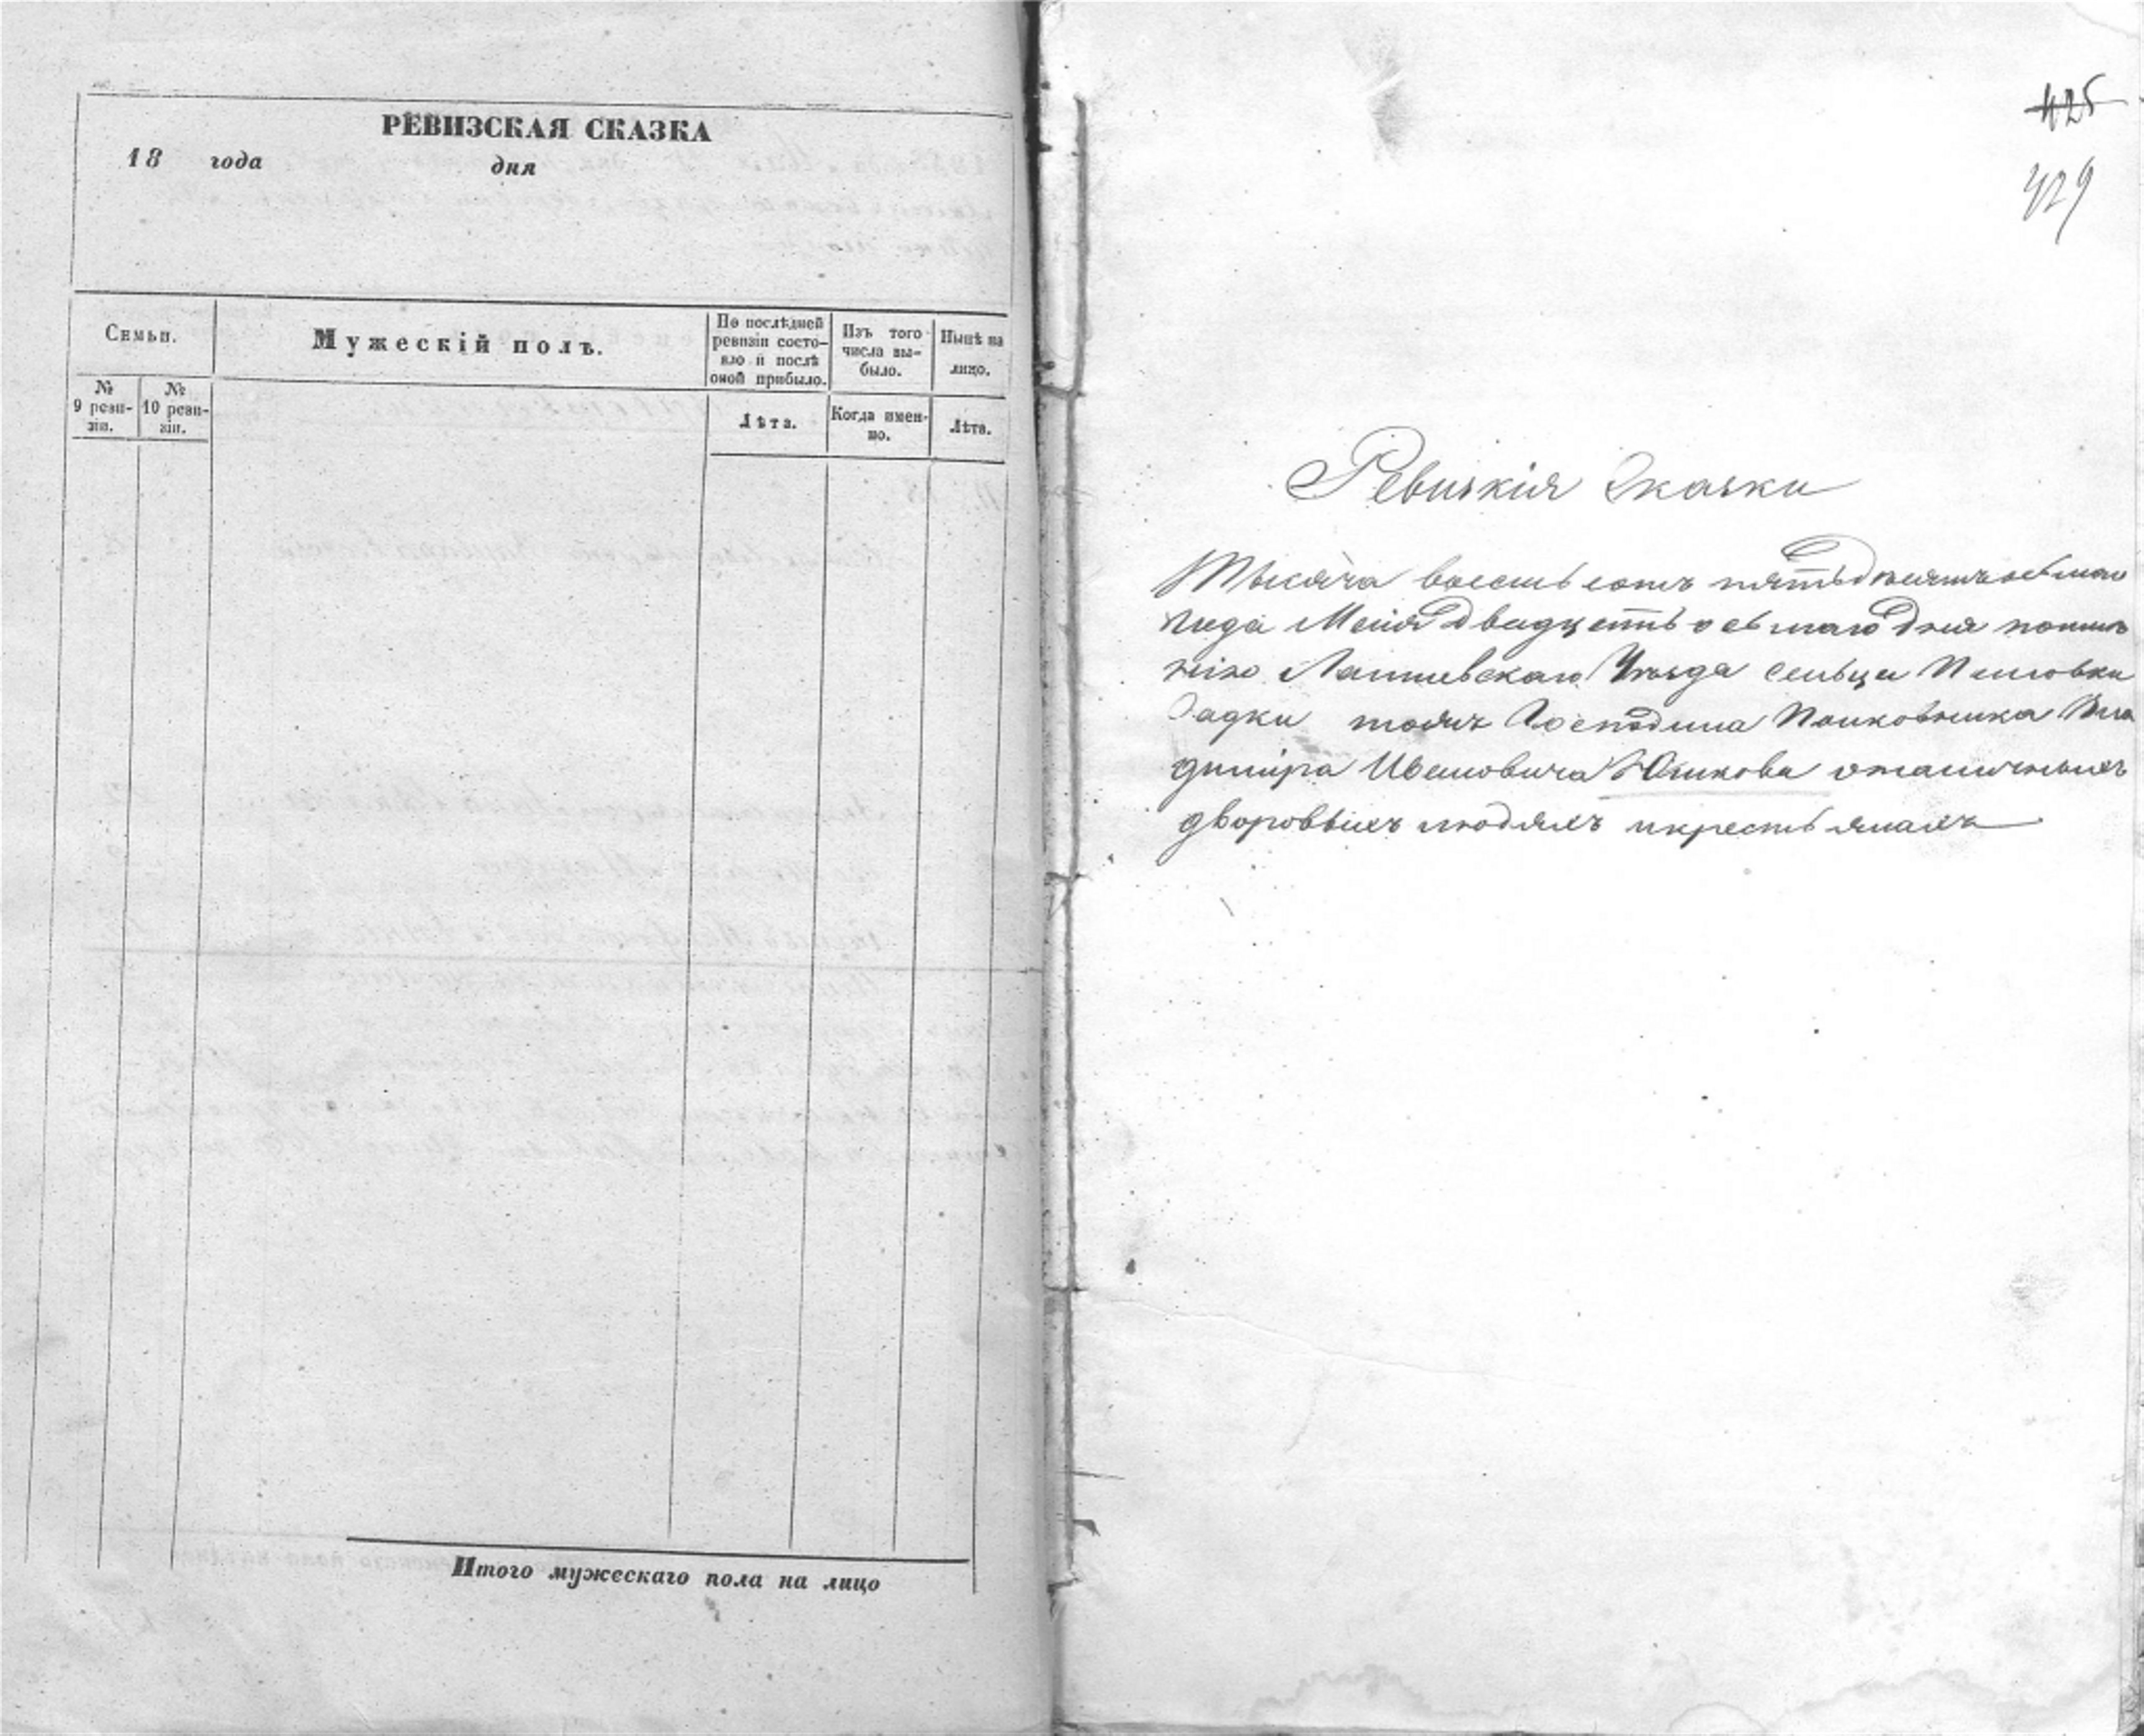 РЕВИЗСКАЯ СКАЗКА
18 года дня
Семьи.
Мужескій полъ.
По послѣдней ревизіи состо-
яло и послѣ
оной прибыло.
Изъ того
числа вы-
было.
Нынѣ на
лицо.
№
9 реви-
зіи.
№
10 реви-
зіи.
Лѣта.
Когда имен-
но.
Лѣта.
Итого мужескаго пола на лицо
425
429
Ревизкія Сказки
Тысяча восемь сотъ пятьдесятъ осьмаго
года Маія двадцать осьмаго дня
Лаишевскаго Уѣзда сельца
тожъ Господина Полковника Вла
диміра Ивановича Юшкова
дворовыхъ людяхъ и крестьянахъ